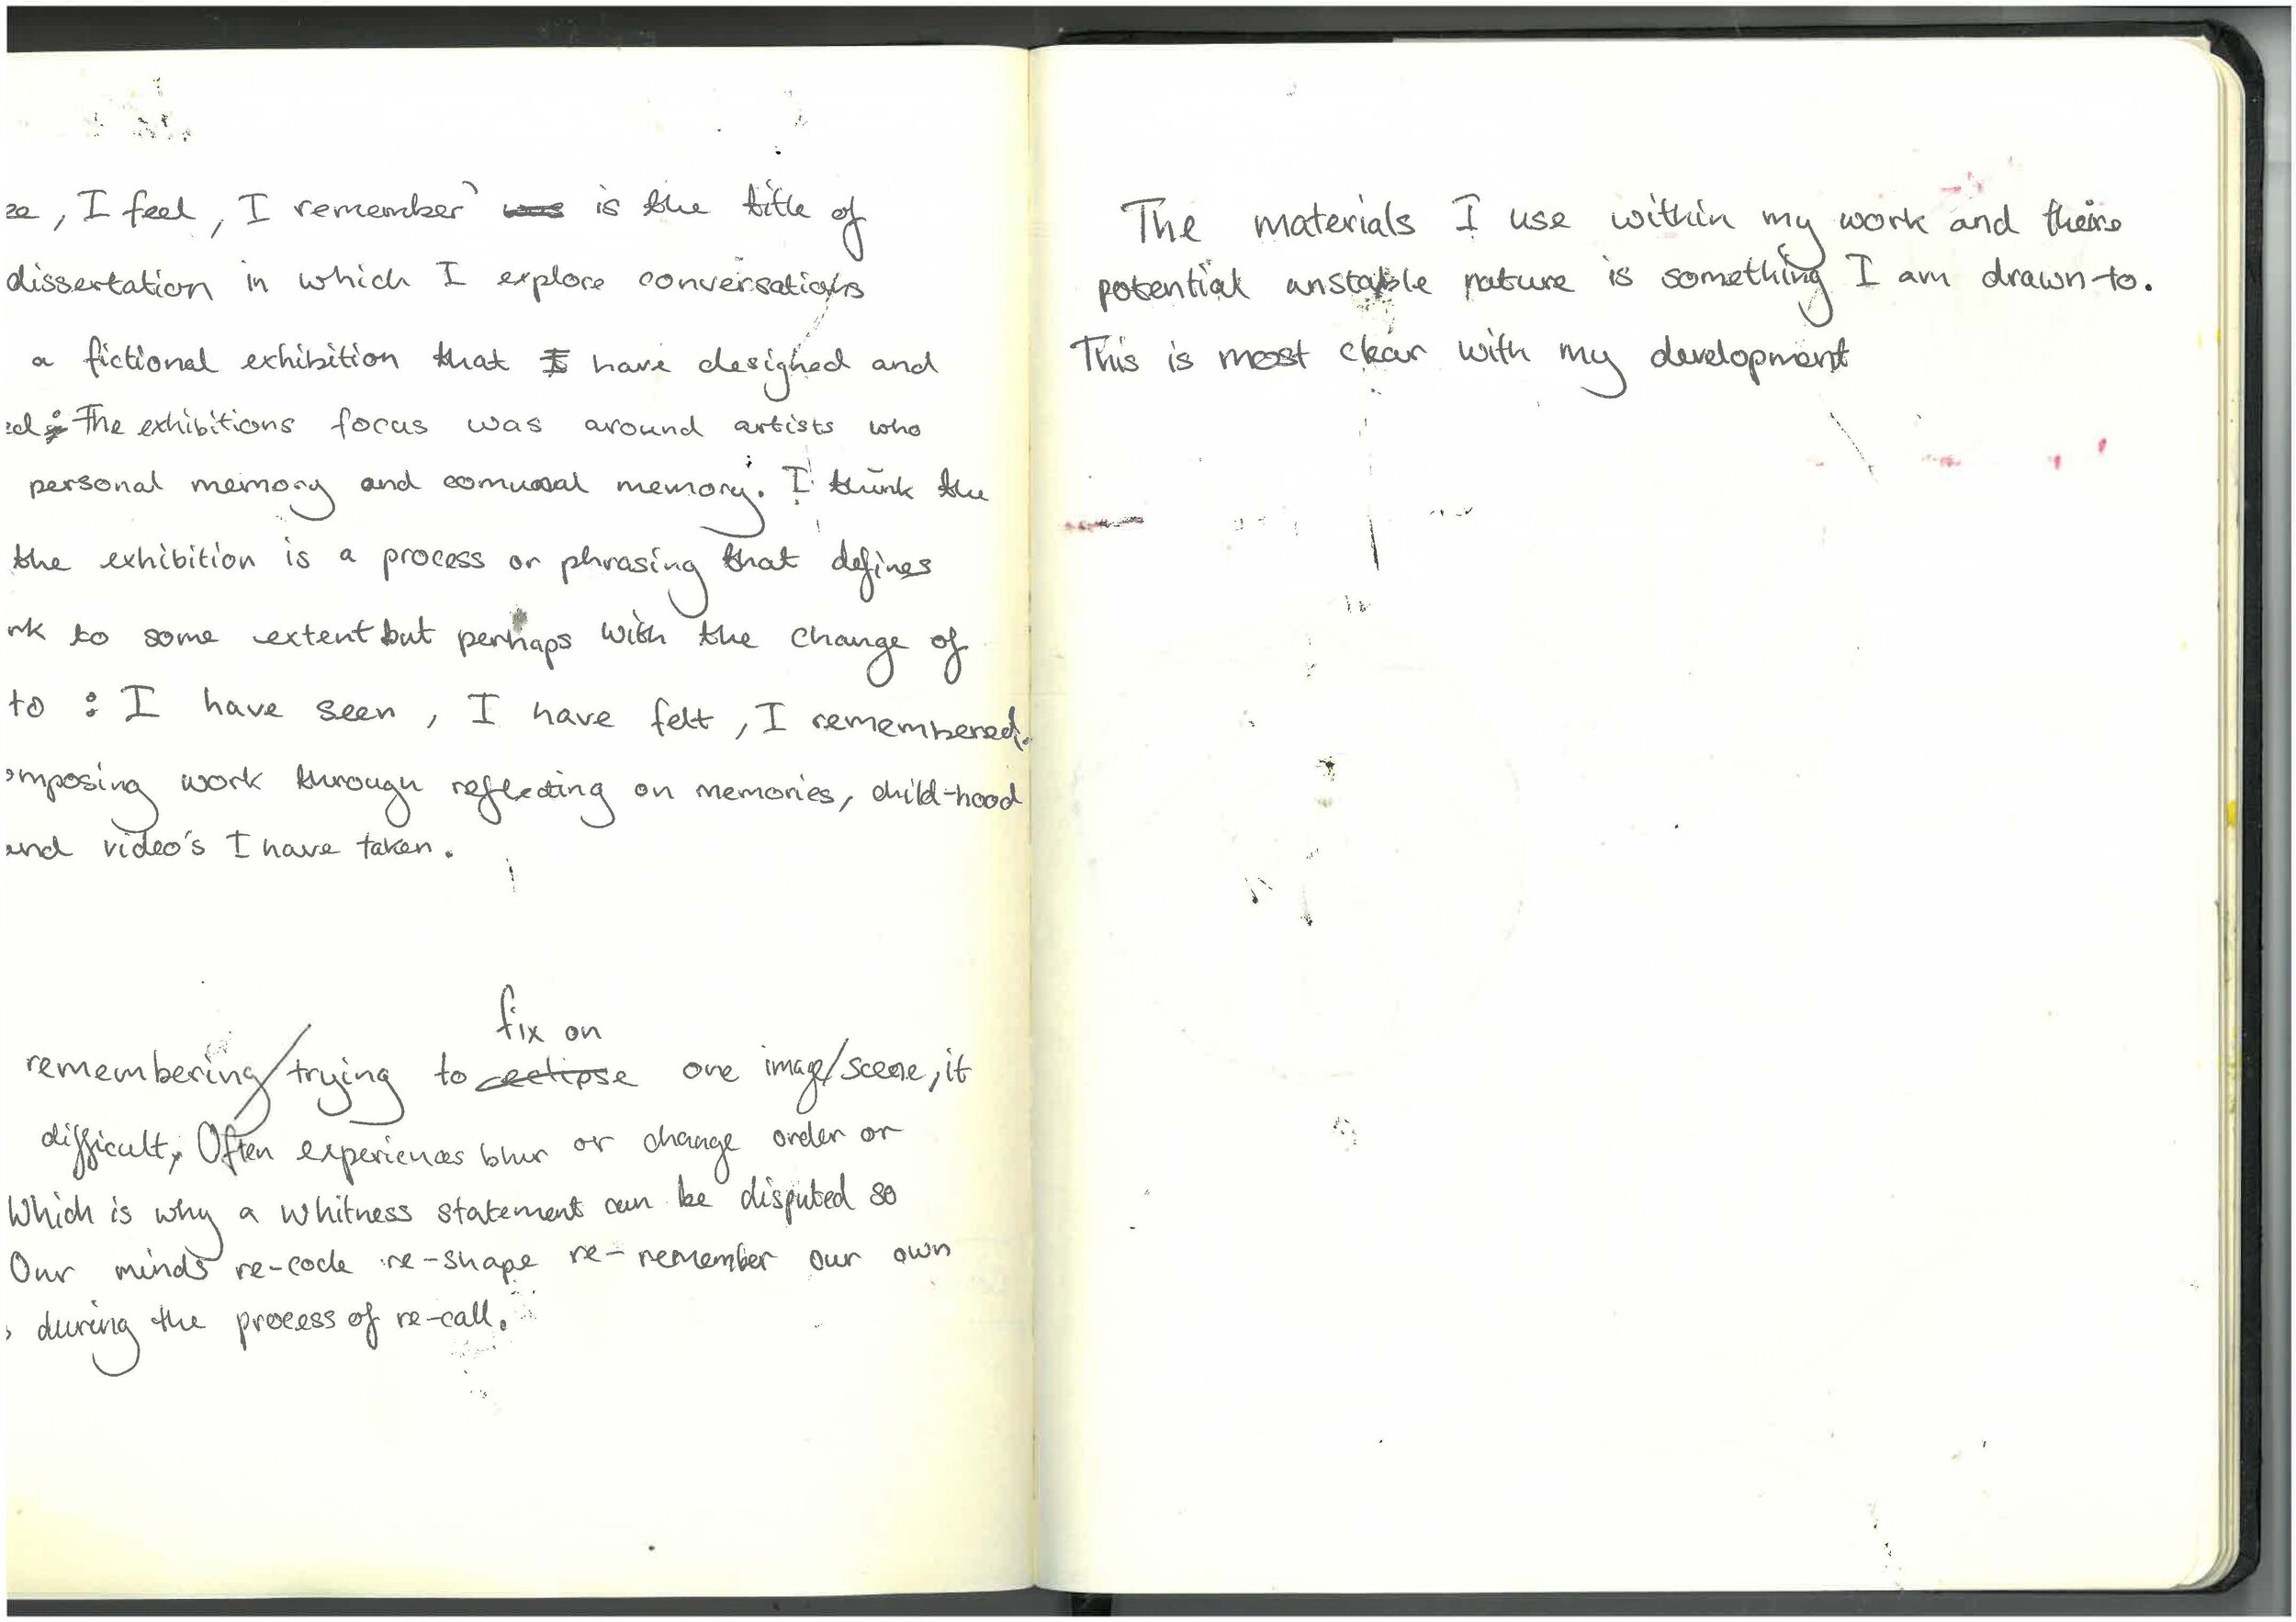 ee, I feel, I remember' was is the title of
dissertation in which I explore conversations
a fictional exhibition that I have designed and
ed. The exhibitions focus was around artists who
personal memory and comunal memory. I think the
the exhibition is a process or phrasing that defines
rk to some extent but perhaps with the change of
to : I have seen, I have felt, I remembered.
omposing work through reflecting on memories, child-hood
and video's I have taken.
fix on
remembering/trying to one image/scene, it
difficult, Often experiences blur or change order or
Which is why a whitness statement can be disputed so
Our minds re-code re-shape re-remember our own
during the process of re-call.
The materials I use within my work and theire
potential unstable nature is something I am drawn-to.
This is most clear with my development